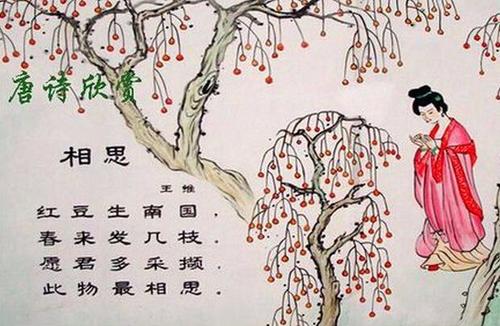 唐诗欣赏
相思
王维
红豆生南国，
春来发几枝。
愿君多采撷，
此物最相思。